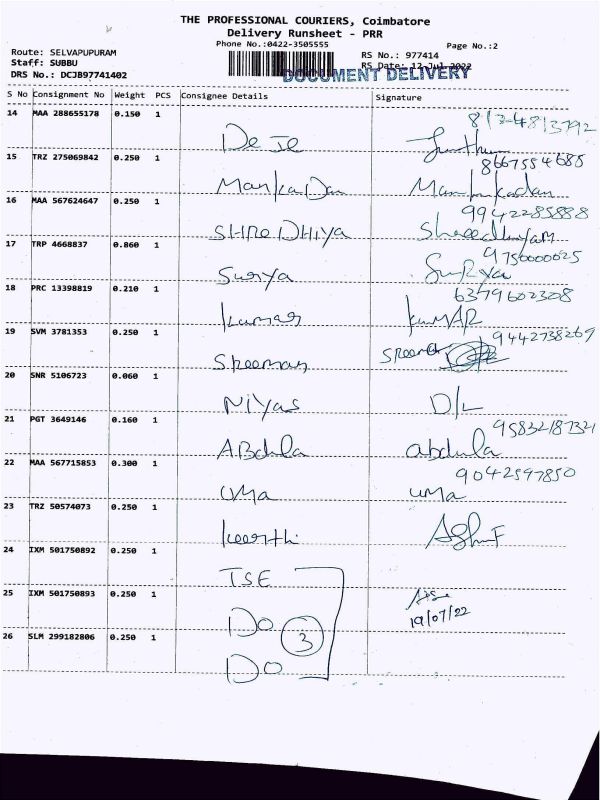 THE PROFESSIONAL COURIERS, Coimbatore
Delivery Runsheet - PRR
Phone No.:0422-3505555
Page No.:2
Route: SELVAPUPURAM
Staff: SUBBU
DRS No.: DCJB97741402
RS No.: 977414
RS Date: 12-Jul-2022
DOCUMENT DELIVERY
S No Consignment No Weight PCS Consignee Details Signature
14 MAA 288655178 0.150 1
8124813792
15 TRZ 275069842 0.250 1
8667554685
Manikadan Manikadan
16 MAA 567624647 0.250 1
9942285888
SHREDHIYA
17 TRP 4668837 0.860 1
9750000025
Surya SuRya
18 PRC 13398819 0.210 1
6379602308
kumar kumAR
19 SVM 3781353 0.250 1
9442738269
Sreeman
20 SNR 5106723 0.060 1
Niyas D/L
21 PGT 3649146 0.160 1
9583218732
ABdula abdula
22 MAA 567715853 0.300 1
9042597850
uma uma
23 TRZ 50574073 0.250 1
keerthi
24 IXM 501750892 0.250 1
TSE
25 IXM 501750893 0.250 1
19/07/22
Do
3
26 SLM 299182806 0.250 1
Do